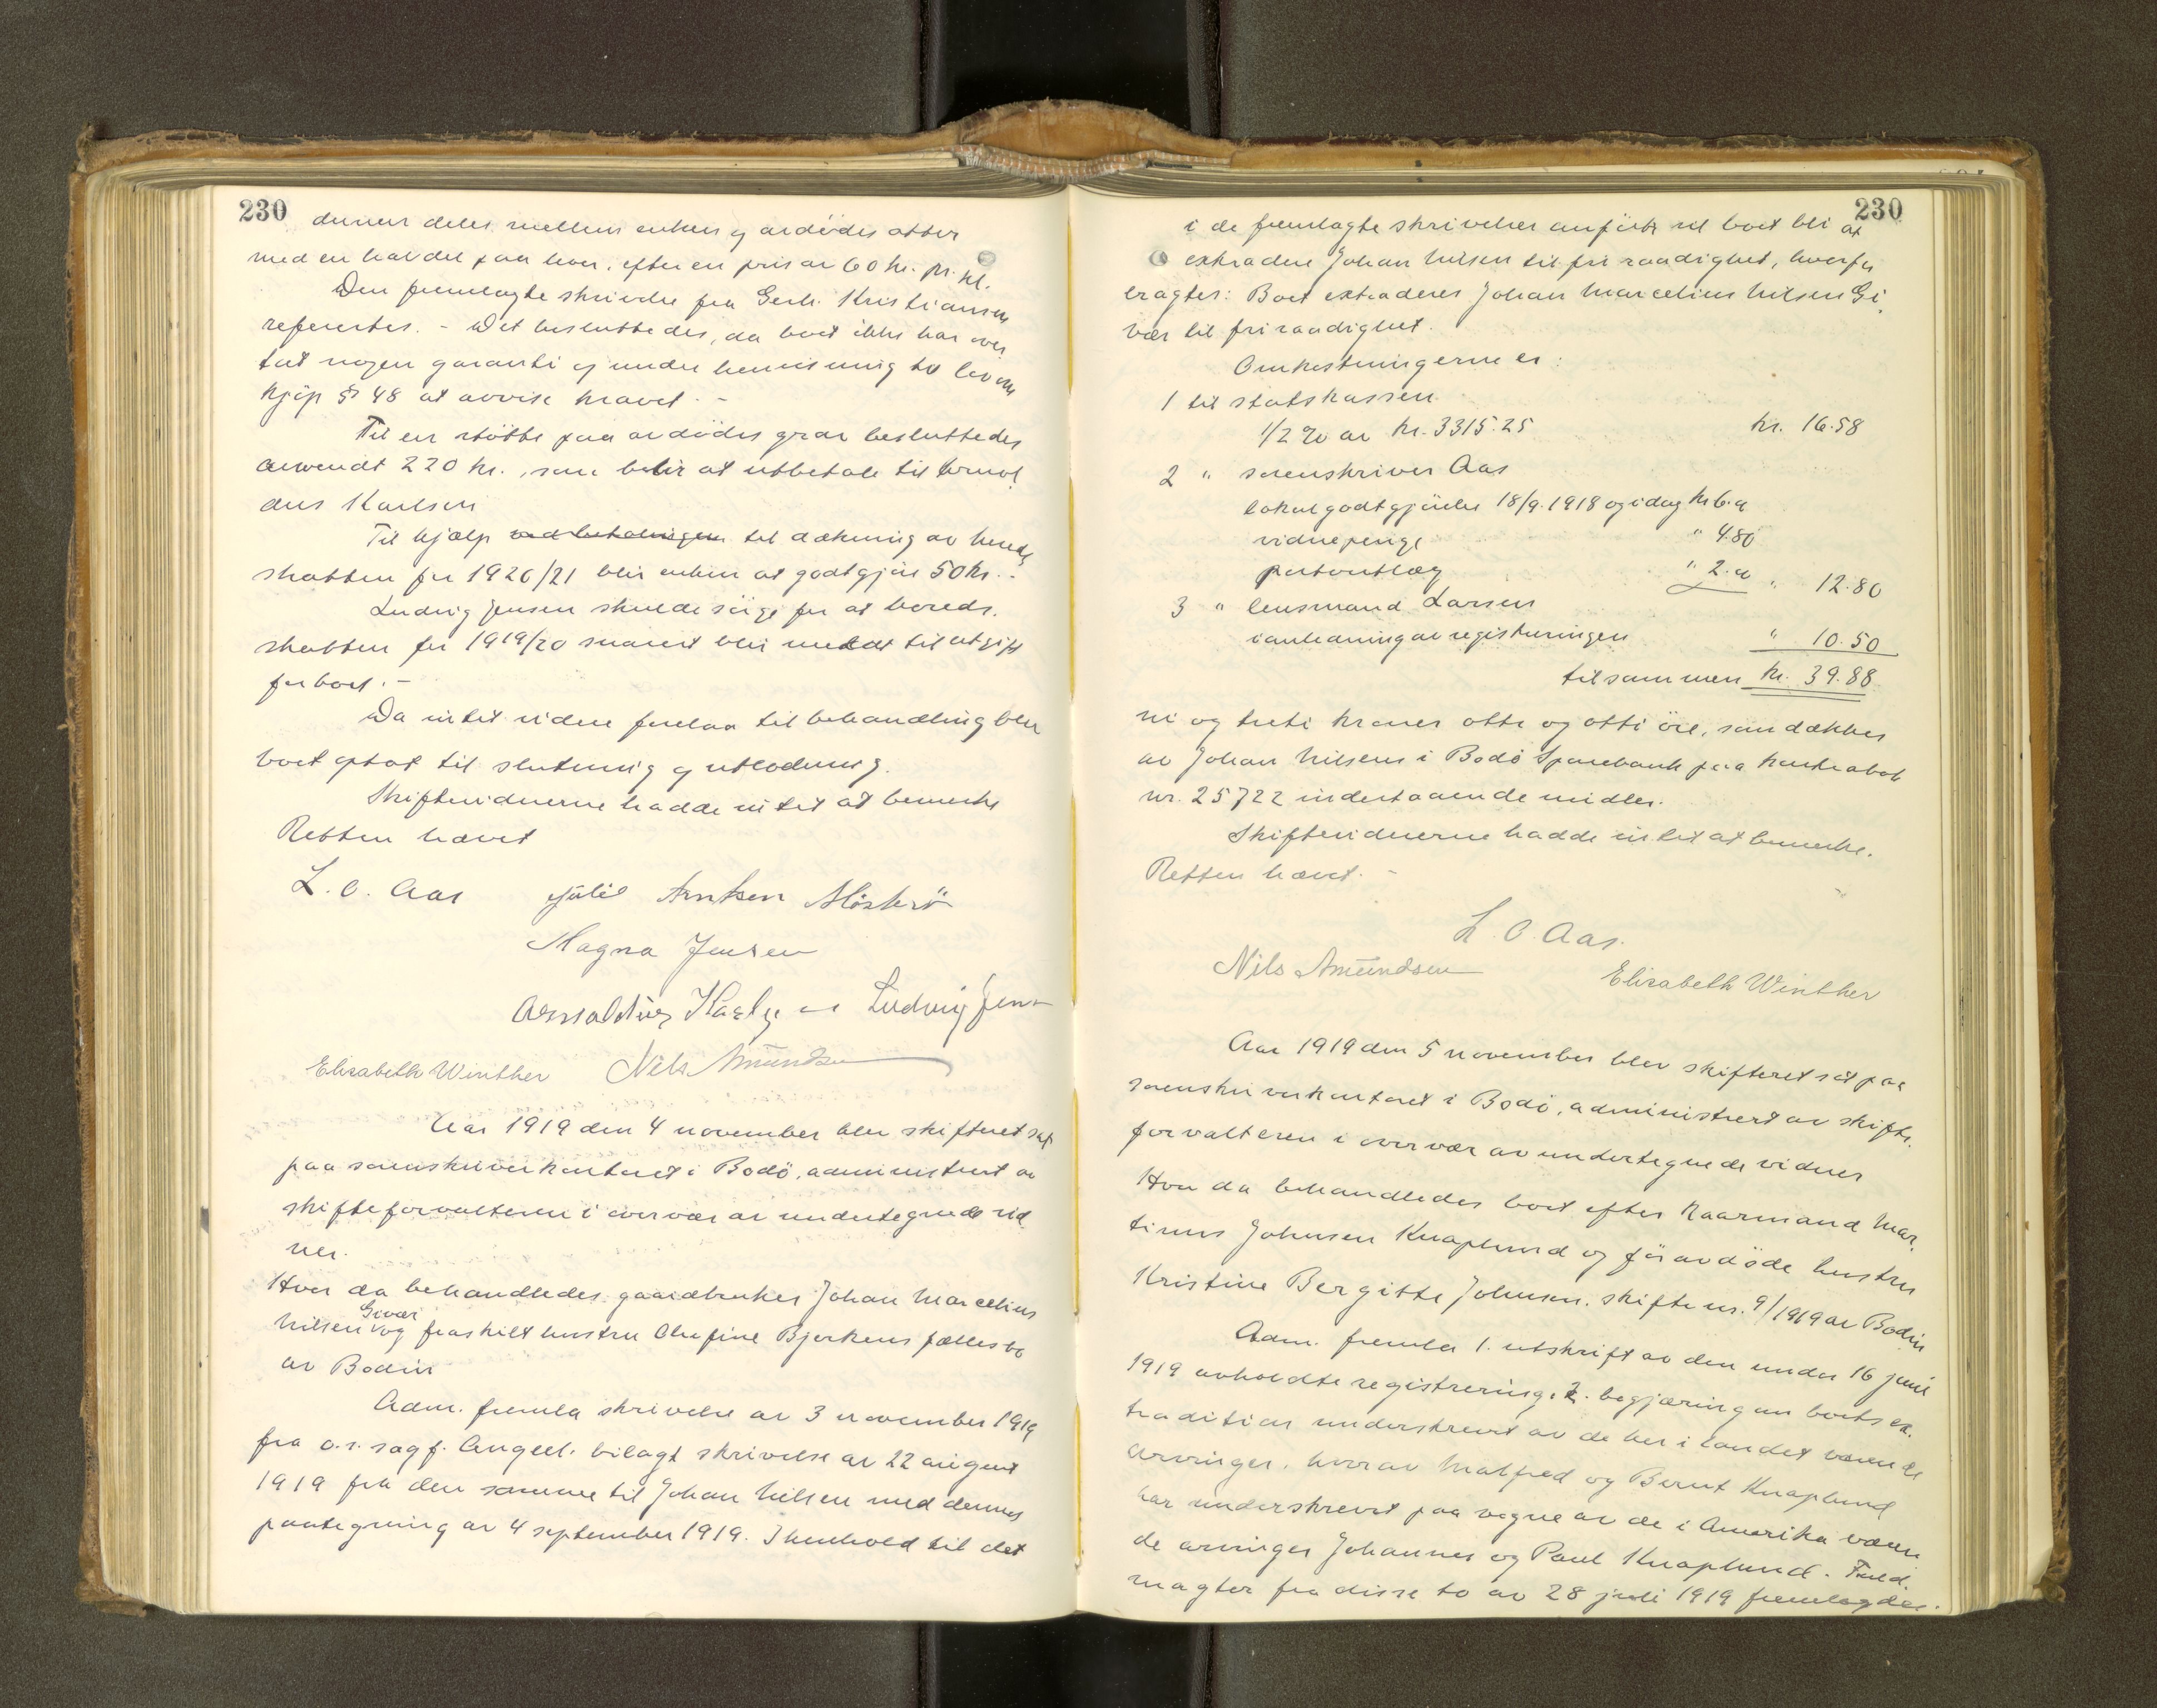 230
denne deles mellem enken og avdödes atter
med en halvdel paa hver, efter en pris av 60 kr. pr. hl.
Den fremlagte skrivelse fra Gerh. Kristiansen
refereertes. - Det besluttedes, da boet ikke har over
tat nogen garanti og under henvisning til lov om
kjöp § 48 at avvise kravet. -
Til en stötte paa avdödes grav besluttedes
anvendt 220 kr., som blir at utbetale til Arnol
dus Karlsen
Til hjælp ved betalingen til dækning av hereds
skatten for 1920/21 blir enken at godtgjöre 50 kr. -
Ludvig Jensen skulde sörge for at hereds.
skatten for 1919/20 snarest blir meldt til utgift
for boet. -
Da intet videre forelaa til behandling blev
boet optat til slutning og utlodning.
Skiftevidnerne hadde intet at bemerke
Retten hævet
L. O. Aas Julie Arntsen
Magna Jensen
Arnoldus Karlsen Ludvig Jensen
Elisabeth Winther Nils Amundsen
Aar 1919 den 4 november blev skifteret sat
paa sorenskriverkontoret i Bodö, administrert av
skifteforvalteren i overvær av undertegnede vid
ner.
Hvor da behandledes gaardbruker Johan Marcelius
Givær
Nilsen og fraskilt hustru Olufine Bjerkens fællesbo
av Bodin
Adm. fremla skrivelse av 3 november 1919
fra o.r. sagf. Angell. bilagt skrivelse av 22 august
1919 fra den samme til Johan Nilsen med dennes
paategning av 4 september 1919. I henhold til det
230
i de fremlagte skrivelser anförte vil boet bli at
extradere Johan Nilsen til fri raadighet, hvorfor
eragtes: Boet extraderes Johan Marcelius Nilsen Gi
vær til fri raadighet.
Omkostningerne er:
1 til statskassen
1/2 % av kr. 3315.25 kr. 16.58
2 " sorenskriver Aas
lokalgodtgjörelse 18/9.1918 og idag kr 6.00
vidnepenge " 4.80
portoutlæg " 2.00 " 12.80
3 " lensmand Larsen
i anledning av registreringen " 10.50
tilsammen kr. 39.88
ni og treti kroner otte og otti öre, som dækkes
av Johan Nilsens i Bodö Sparebank paa kontrabok
nr. 25722 indestaaende midler.
Skiftevidnerne hadde intet at bemerke.
Retten hævet. -
L. O. Aas.
Nils Amundsen Elisabeth Winther
Aar 1919 den 5 november blev skifteret sat paa
sorenskriverkontoret i Bodö, administrert av skifte.
forvalteren i overvær av undertegnede vidner
Hvor da behandledes boet efter kaarmand Mar.
tinus Johnsen Knaplund og för avdöde hustru
Kristine Bergitte Johnsen. skifte nr. 9/1919 av Bodin
Adm. fremla 1. utskrift av den under 16 juni
1919 avholdte registrering. 2. begjæring om boets ex.
tradition underskrevet av de her i landet værende
arvinger, hvorav Malfred og Bernt Knaplund
har underskrevet paa vegne av de i Amerika væren
de arvinger Johannes og Paul Knaplund. Fuld.
magter fra disse to av 28 juli 1919 fremlagdes.